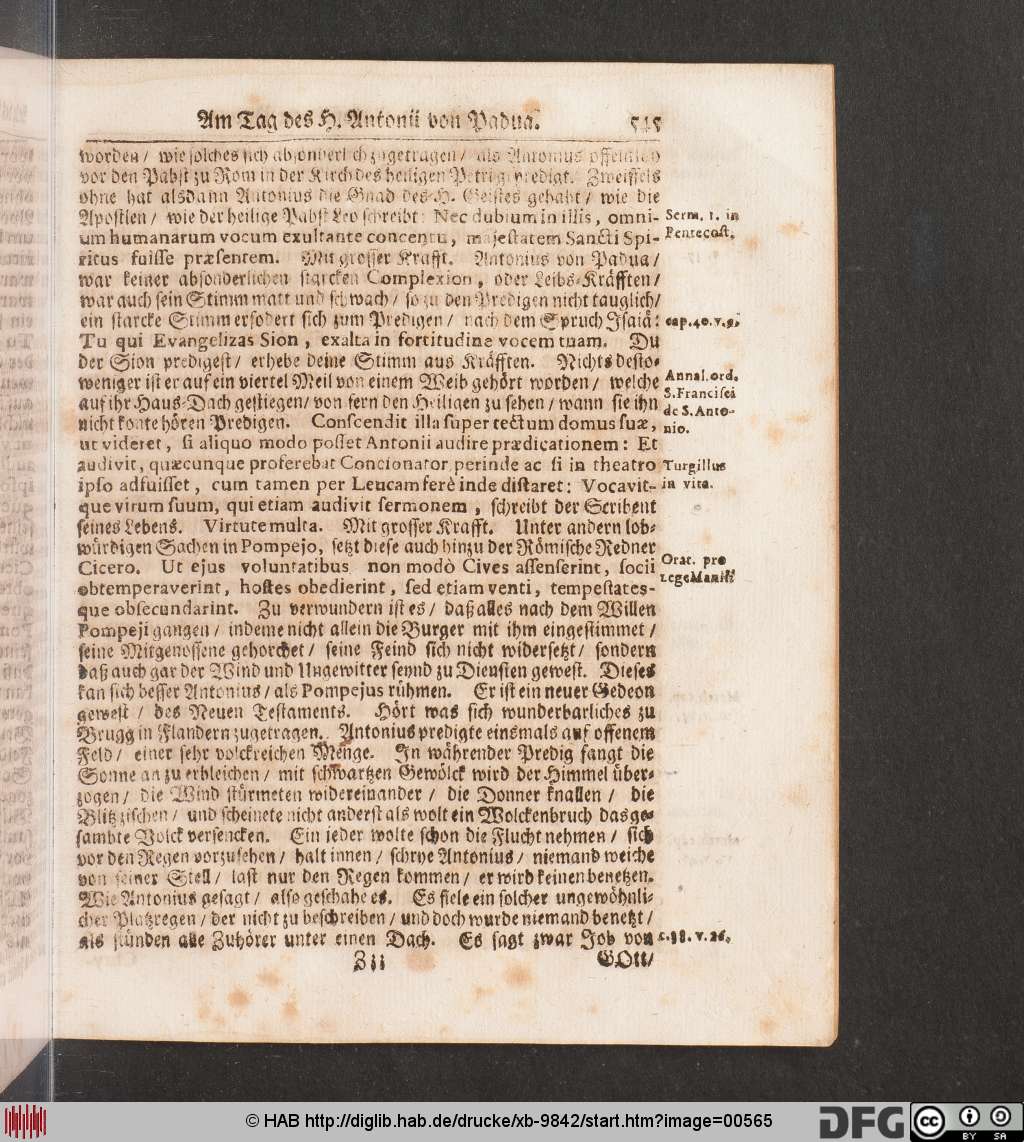 Am Tag des H. Antonii von Padua. 545
worden / wie solches sich absonderlich zugetragen / als Antonius offentlich
vor den Pabst zu Rom in der Kirch des heiligen Petri geprediget. Zweiffels
ohne hat alsdann Antonius die Gnad des H. Geistes gehabt / wie die
Apostlen / wie der heilige Pabst Leo schreibt: Nec dubium in illis, omni-
um humanarum vocum exultante concentu, majestatem Sancti Spi-
ritus fuisse præsentem. Mit grosser Krafft. Antonius von Padua /
war keiner absonderlichen starcken Complexion, oder Leibs-Kräfften /
war auch sein Stimm matt und schwach / so zu den Predigen nicht tauglich /
ein starcke Stimm erfodert sich zum Predigen / nach dem Spruch Isaiä:
Tu qui Evangelizas Sion, exalta in fortitudine vocem tuam. Du
der Sion predigest / erhebe deine Stimm aus Kräfften. Nichts desto-
weniger ist er auf ein viertel Meil von einem Weib gehört worden / welche
auf ihr Haus-Dach gestiegen / von fern den Heiligen zu sehen / wann sie ihn
nicht konte hören Predigen. Conscendit illa super tectum domus suæ,
ut videret, si aliquo modo posset Antonii audire prædicationem: Et
audivit, quæcunque proferebat Concionator perinde ac si in theatro
ipso adfuisset, cum tamen per Leucam ferè inde distaret: Vocavit-
que virum suum, qui etiam audivit sermonem, schreibt der Scribent
seines Lebens. Virtute multa. Mit grosser Krafft. Unter andern lob-
würdigen Sachen in Pompejo, setzt diese auch hinzu der Römische Redner
Cicero. Ut ejus voluntatibus non modò Cives assenserint, socii
obtemperaverint, hostes obedierint, sed etiam venti, tempestates-
que obsecundarint. Zu verwundern ist es / daß alles nach dem Willen
Pompeji gangen / indeme nicht allein die Burger mit ihm eingestimmet /
seine Mitgenossene gehorchet / seine Feind sich nicht widersetzt / sondern
daß auch gar der Wind und Ungewitter seynd zu Diensten gewest. Dieses
kan sich besser Antonius / als Pompejus rühmen. Er ist ein neuer Gedeon
gewest / des Neuen Testaments. Hört was sich wunderbarliches zu
Brugg in Flandern zugetragen. Antonius predigte einsmals auf offenem
Feld / einer sehr volckreichen Menge. In währender Predig fangt die
Sonne an zu erbleichen / mit schwartzen Gewölck wird der Himmel über-
zogen / die Wind stürmeten widereinander / die Donner knallen / die
Blitz zischen / und scheinete nicht anderst als wolt ein Wolckenbruch das ge-
sambte Volck versencken. Ein jeder wolte schon die Flucht nehmen / sich
vor den Regen vorzusehen / halt innen / schrye Antonius / niemand weiche
von seiner Stell / last nur den Regen kommen / er wird keinen benetzen.
Wie Antonius gesagt / also geschahe es. Es fiele ein solcher ungewöhnli-
cher Platzregen / der nicht zu beschreiben / und doch wurde niemand benetzt /
als stünden alle Zuhörer unter einen Dach. Es sagt zwar Job von
Zii GOtt /
Serm. 1. in
Pentecost.
cap. 40. v. 9.
Annal. ord.
S. Francisci
de S. Anto-
nio.
Turgillus
in vita.
Orat. pro
Lege Manil.
c. 38. v. 26.
© HAB http://diglib.hab.de/drucke/xb-9842/start.htm?image=00565
DFG
cc BY SA